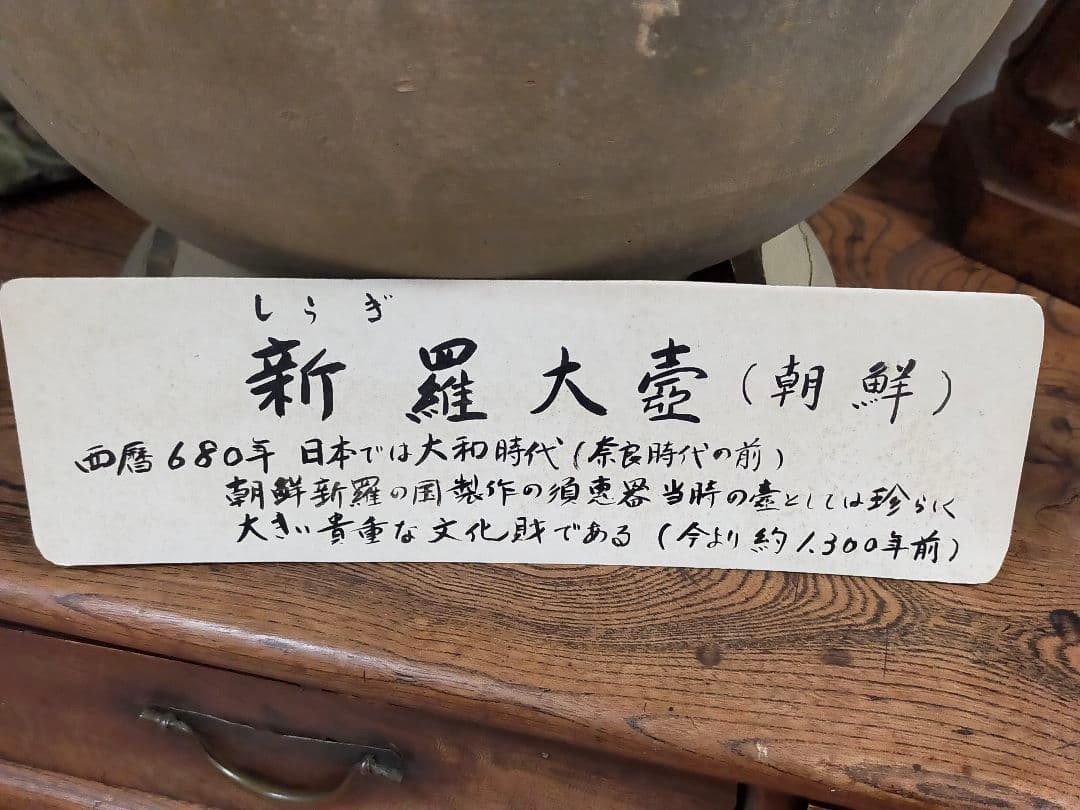 しらぎ
新羅大壺(朝鮮)
西暦680年 日本では大和時代(奈良時代の前)
朝鮮新羅の国製作の須恵器当時の壺としては珍らしく
大きい貴重な文化財である(今より約1.300年前)